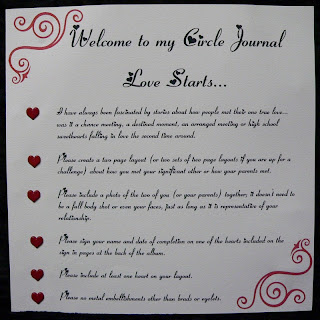 Welcome to my Circle Journal
Love Starts...
I have always been fascinated by stories about how people met their one true love...
was it a chance meeting, a destined moment, an arranged meeting or high school
sweethearts falling in love the second time around.
Please create a two page layout (or two sets of two page layouts if you are up for a
challenge) about how you met your significant other or how your parents met.
Please include a photo of the two of you (or your parents) together, it doesn't need to
be a full body shot or even your faces, just as long as it is representative of your
relationship.
Please sign your name and date of completion on one of the hearts included on the
sign in pages at the back of the album.
Please include at least one heart on your layout.
Please no metal embellishments other than brads or eyelets.